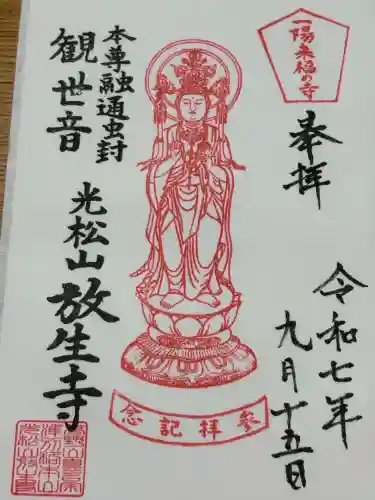 一陽来福の寺
奉拝
令和七年
九月十五日
参拝記念
本尊融通虫封
観世音
光松山放生寺